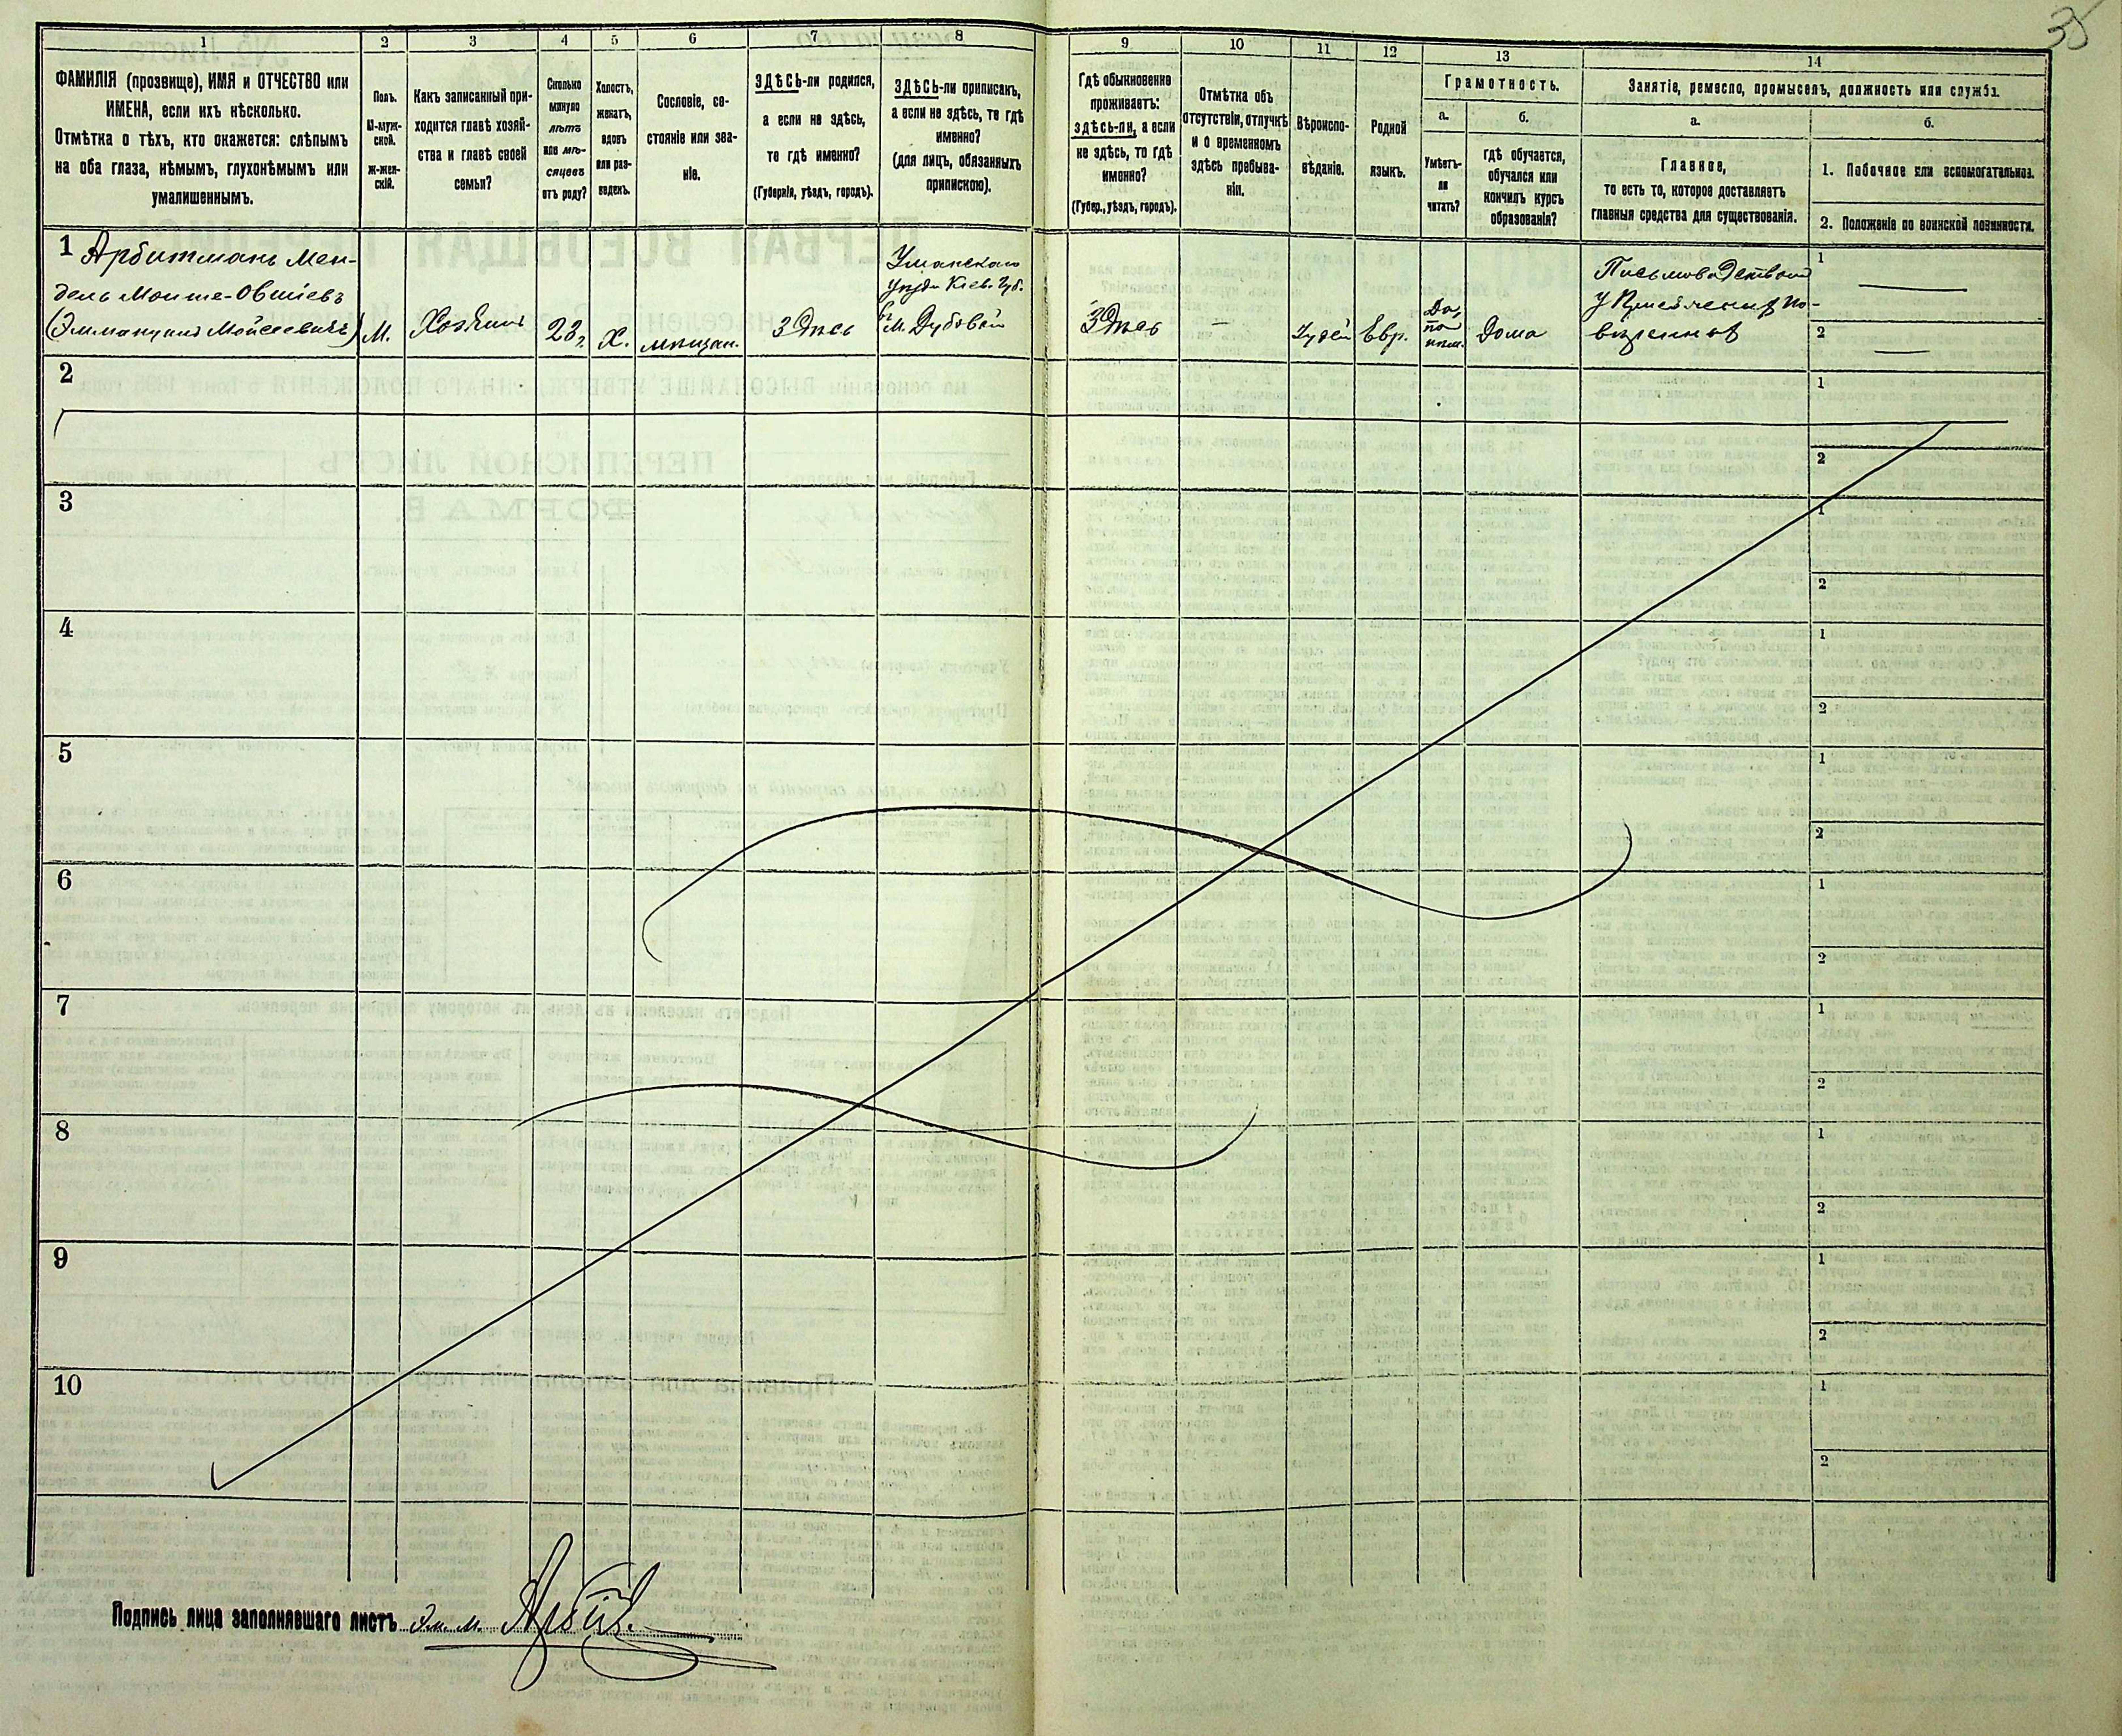 35
1
2
3
4
5
6
7
8
9
10
11
12
13
14
ФАМИЛІЯ (прозвище), ИМЯ и ОТЧЕСТВО или
ИМЕНА, если ихъ нѣсколько.
Отмѣтка о тѣхъ, кто окажется: слѣпымъ
на оба глаза, нѣмымъ, глухонѣмымъ или
умалишеннымъ.
Полъ.
М-муж-
ской.
ж-жен-
скій.
Какъ записанный при-
ходится главѣ хозяй-
ства и главѣ своей
семьи?
Сколько
минуло
лѣтъ
или мѣ-
сяцевъ
отъ роду?
Холостъ,
женатъ,
вдовъ
или раз-
веденъ.
Сословіе, со-
стояніе или зва-
ніе.
ЗДѢСЬ-ли родился,
а если не здѣсь,
то гдѣ именно?
(Губернія, уѣздъ, городъ).
ЗДѢСЬ-ли приписанъ,
а если не здѣсь, то гдѣ
именно?
(для лицъ, обязанныхъ
припискою).
Гдѣ обыкновенно
проживаетъ:
здѣсь-ли, а если
не здѣсь, то гдѣ
именно?
(Губер., уѣздъ, городъ).
Отмѣтка объ
отсутствіи, отлучкѣ
и о временномъ
здѣсь пребыва-
ніи.
Вѣроиспо-
вѣданіе.
Родной
языкъ.
Грамотность.
а.
Умѣетъ-
ли
читать?
б.
гдѣ обучается,
обучался или
кончилъ курсъ
образованія?
Занятіе, ремесло, промыселъ, должность или служба.
а.
Главное,
то есть то, которое доставляетъ
главныя средства для существованія.
б.
1. Побочное или вспомогательное.
2. Положеніе по воинской повинности.
1 Арбитманъ Мен-
дель Мойше-Овшіевъ
(Эммануилъ Мойсеевичъ)
М.
Хозяинъ
23 г.
Х.
мѣщан.
Здѣсь
Уманскаго
уѣзда Кіев. Губ.
М. Дубовой
Здѣсь
—
Іудей
Евр.
Да,
по
Дома
Письмоводствомъ
у Присяжныхъ по-
вѣренныхъ
1
—
2
—
2
1
2
3
1
2
4
1
2
5
1
2
6
1
2
7
1
2
8
1
2
9
1
2
10
1
2
Подпись лица заполнявшаго листъ Эм. М.